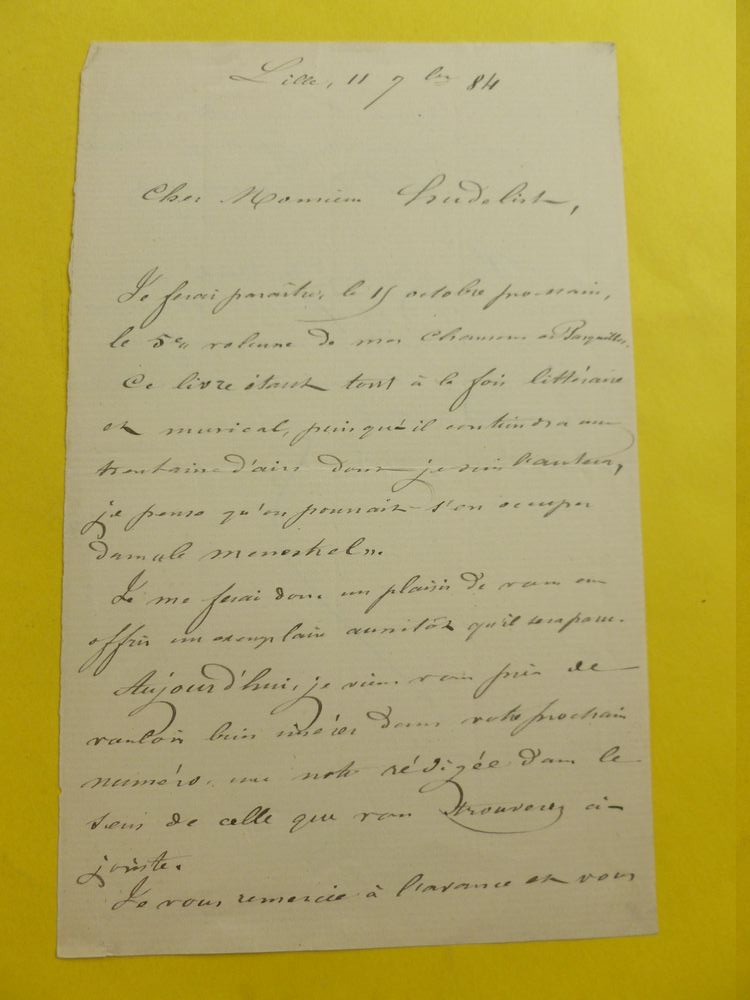 Lille, 11 7bre 84
Cher Monsieur Heudelist,
Je ferai paraître, le 15 octobre prochain,
le 5e volume de mes Chansons et Pasquilles.
Ce livre étant tout à la fois littéraire
et musical, puisqu'il contiendra une
trentaine d'airs dont je suis l'auteur,
je pense qu'on pourrait s'en occuper
dans le Menestrel.
Je me ferai donc un plaisir de vous en
offrir un exemplaire aussitôt qu'il sera paru.
Aujourd'hui, je viens vous prier de
vouloir bien insérer dans votre prochain
numéro, une note rédigée dans le
sens de celle que vous trouverez ci-
jointe.
Je vous remercie à l'avance et vous